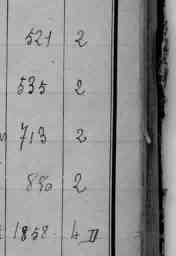 521 2
535 2
713 2
890 2
1858 4 II